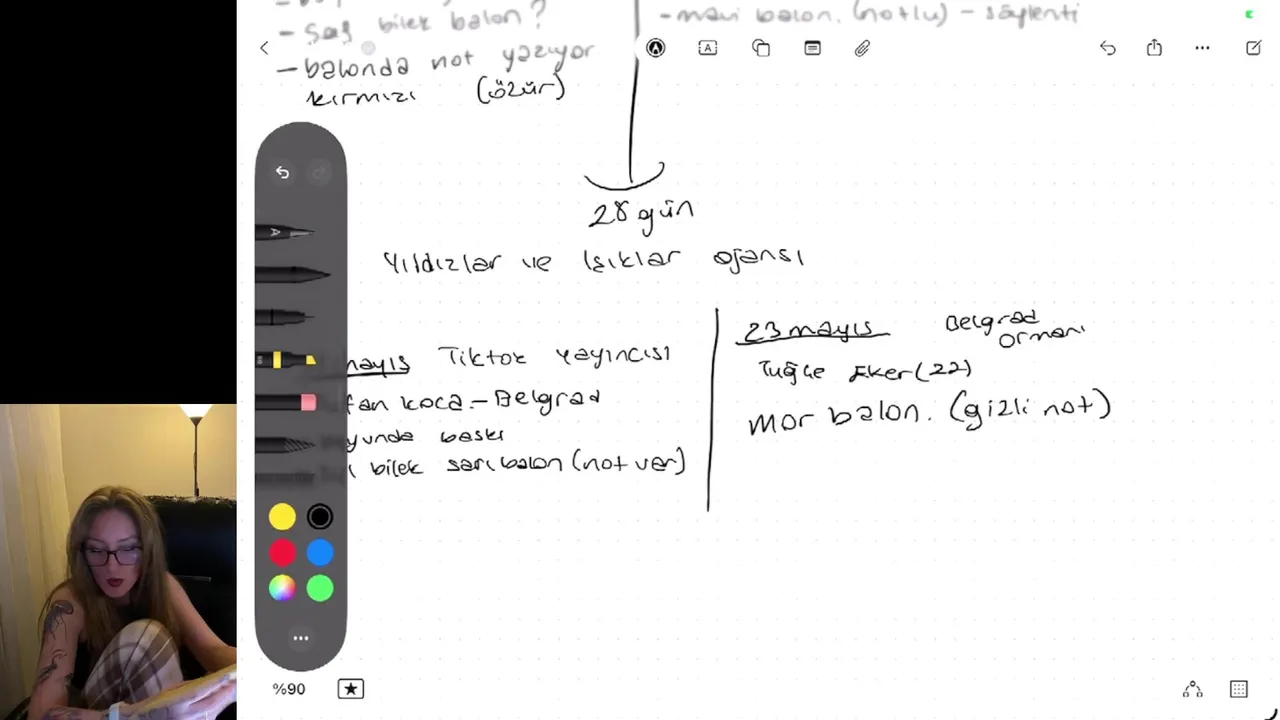 - Sağ bilek balon?
- balonda not yazıyor
kırmızı (özür)
- mavi balon. (notlu) - söylenti
28 gün
Yıldızlar ve Işıklar ajansı
mayıs Tiktok yayıncısı
fan koca - Belgrad
yunda baskı
bilek sarı balon (not var)
23 mayıs Belgrad
ormanı
Tuğçe Eker (22)
mor balon. (gizli not)
%90